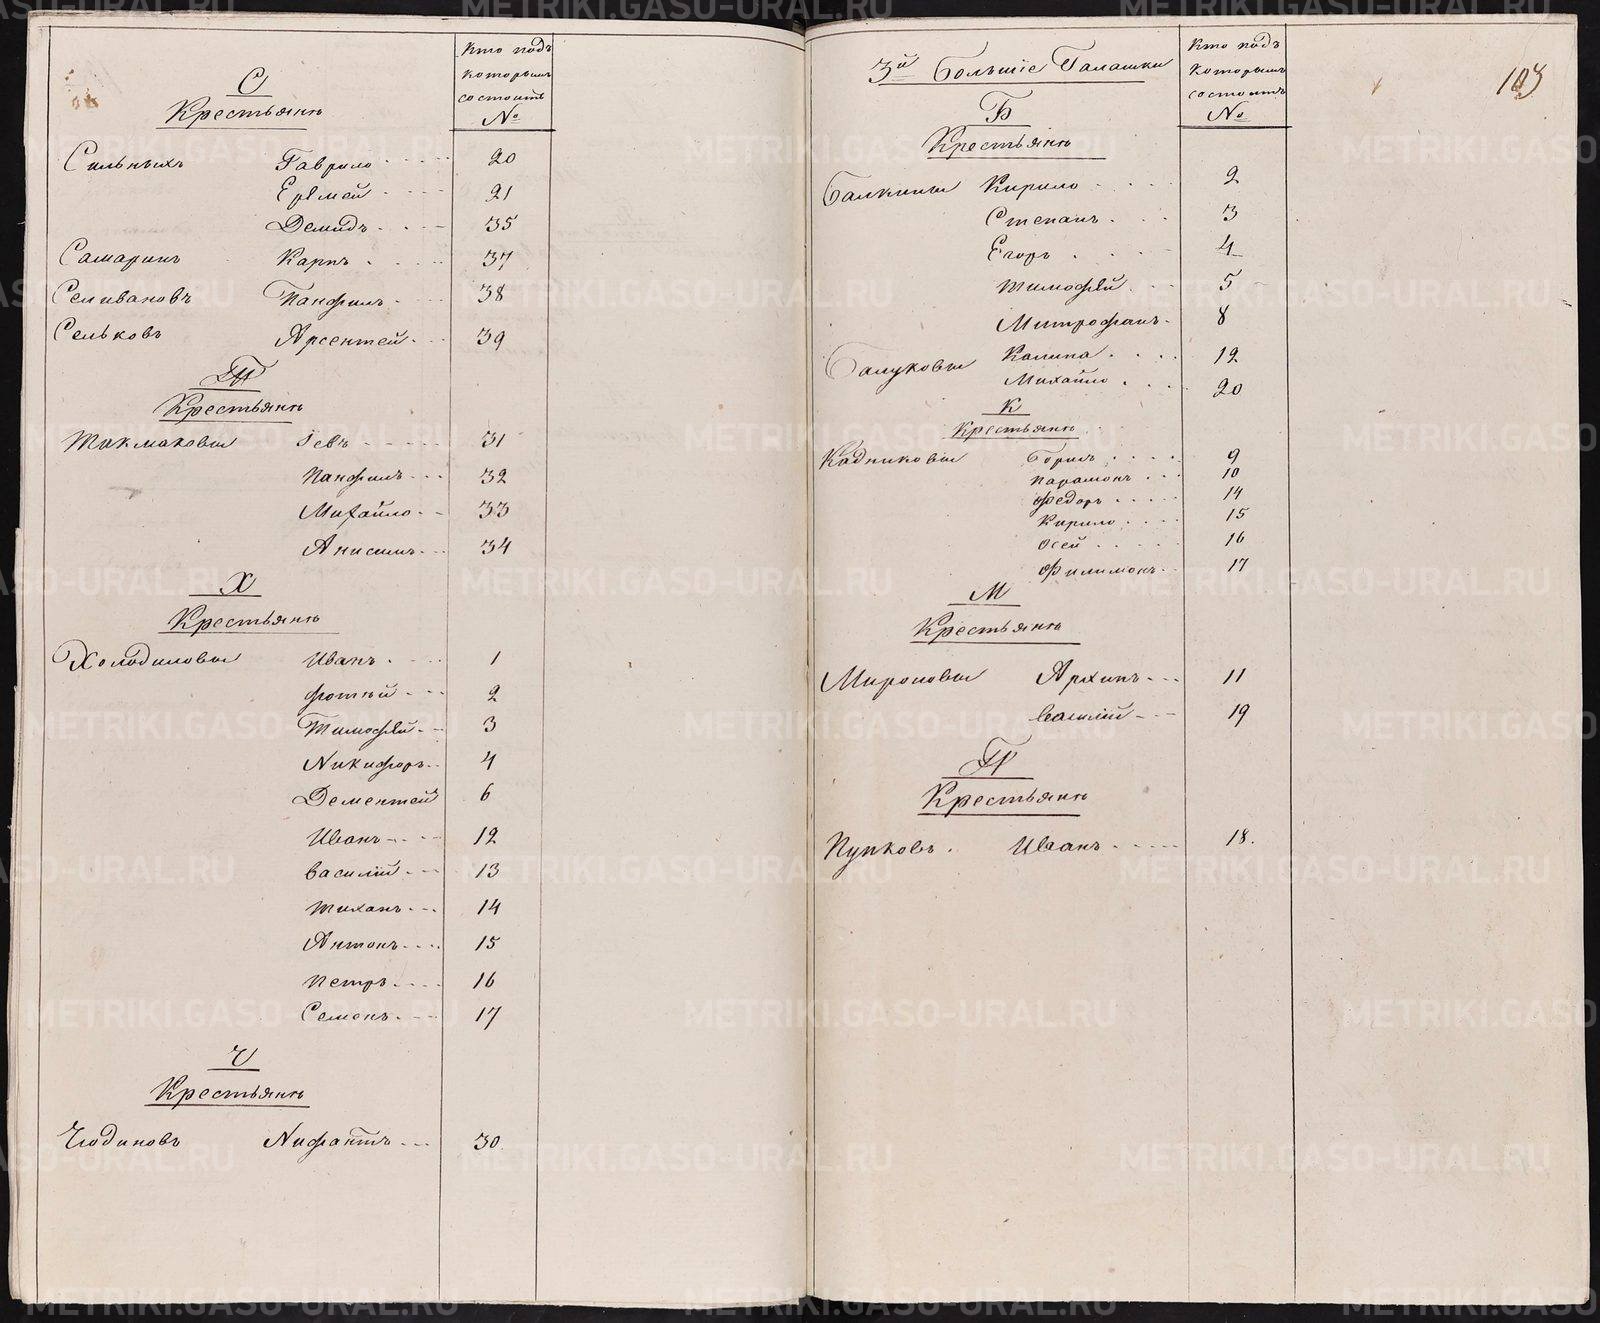 Кто подъ
которымъ
состоитъ
№
С
Крестьяне
Сильныхъ Гаврило 20
Еремей 21
Демидъ 35
Самаринъ Карпъ 37
Селивановъ Панфилъ 38
Сельковъ Арсентей 39
Т
Крестьяне
Токмаковы 31
Панфилъ 32
Михайло 33
Анисимъ 34
Х
Крестьяне
Холодиловы Иванъ 1
Фотий 2
Тимофѣй 3
Никифоръ 4
Дементей 6
Иванъ 12
Василій 13
Тиханъ 14
Антонъ 15
Петръ 16
Семенъ 17
Ч
Крестьяне
Чюдиновъ Нифантъ 30
Кто подъ
которымъ
состоитъ
№
103
3й Большіе Галашки
Б
Крестьяне
Балкины Кирило 2
Степанъ 3
Егоръ 4
Тимофѣй 5
Митрофанъ 8
Балуковы Калина 12
Михайло 20
К
Крестьяне
Кадниковы 9
Парамонъ 10
Федоръ 14
Кирило 15
Осей 16
Филимонъ 17
М
Крестьяне
Мироновы Архипъ 11
Василій 19
П
Крестьяне
Пупковъ. Иванъ 18.
METRIKI.GASO-URAL.RU